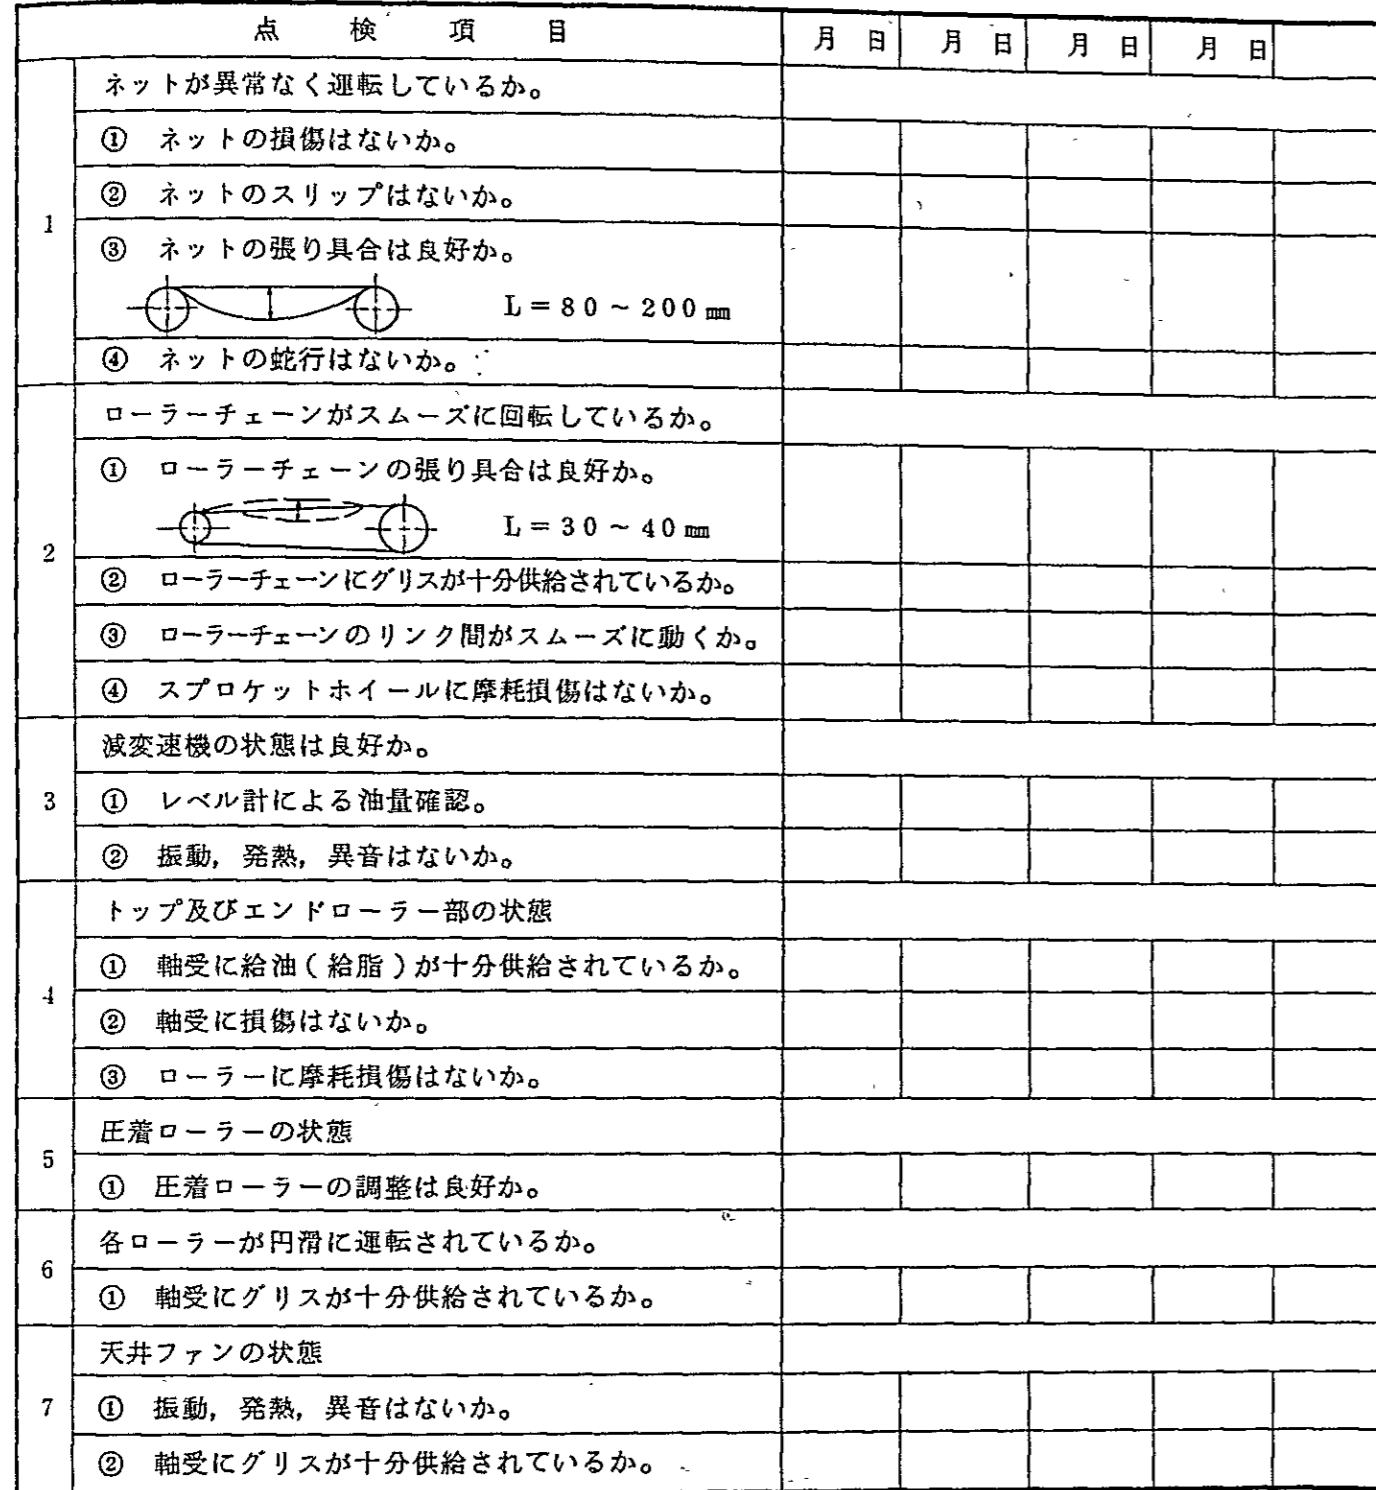 点 検 項 目 月 日 月 日 月 日 月 日
1
ネットが異常なく運転しているか。
① ネットの損傷はないか。
② ネットのスリップはないか。
③ ネットの張り具合は良好か。
L=80~200㎜
④ ネットの蛇行はないか。
2
ローラーチェーンがスムーズに回転しているか。
① ローラーチェーンの張り具合は良好か。
L=30~40㎜
② ローラーチェーンにグリスが十分供給されているか。
③ ローラーチェーンのリンク間がスムーズに動くか。
④ スプロケットホイールに摩耗損傷はないか。
3
減変速機の状態は良好か。
① レベル計による油量確認。
② 振動,発熱,異音はないか。
4
トップ及びエンドローラー部の状態
① 軸受に給油(給脂)が十分供給されているか。
② 軸受に損傷はないか。
③ ローラーに摩耗損傷はないか。
5
圧着ローラーの状態
① 圧着ローラーの調整は良好か。
6
各ローラーが円滑に運転されているか。
① 軸受にグリスが十分供給されているか。
7
天井ファンの状態
① 振動,発熱,異音はないか。
② 軸受にグリスが十分供給されているか。